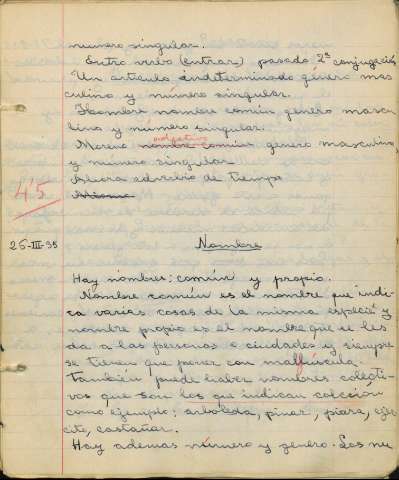 número singular.
Entro verbo (entrar) pasado 2ª conjugación
Un artículo indeterminado género mas
culino y número singular.
Hombre nombre común genero mascu
lino y número singular.
adjetivo
Moreno nombre común genero masculino
y número singular
Ahora adverbio de tiempo
4'5
25-III-35
Nombre
Hay nombres: común y propio.
Nombre común es el nombre que indi-
ca varias cosas de la misma especie y
nombre propio es el nombre que se les
da a las personas o ciudades y siempre
se tienen que poner con mallúscula.
También puede haber nombres colecti-
vos que son los que indican colección
como ejemplo: arboleda, pinar, piara, ejér
cito, castañar.
Hay ademas número y genero. Los nu